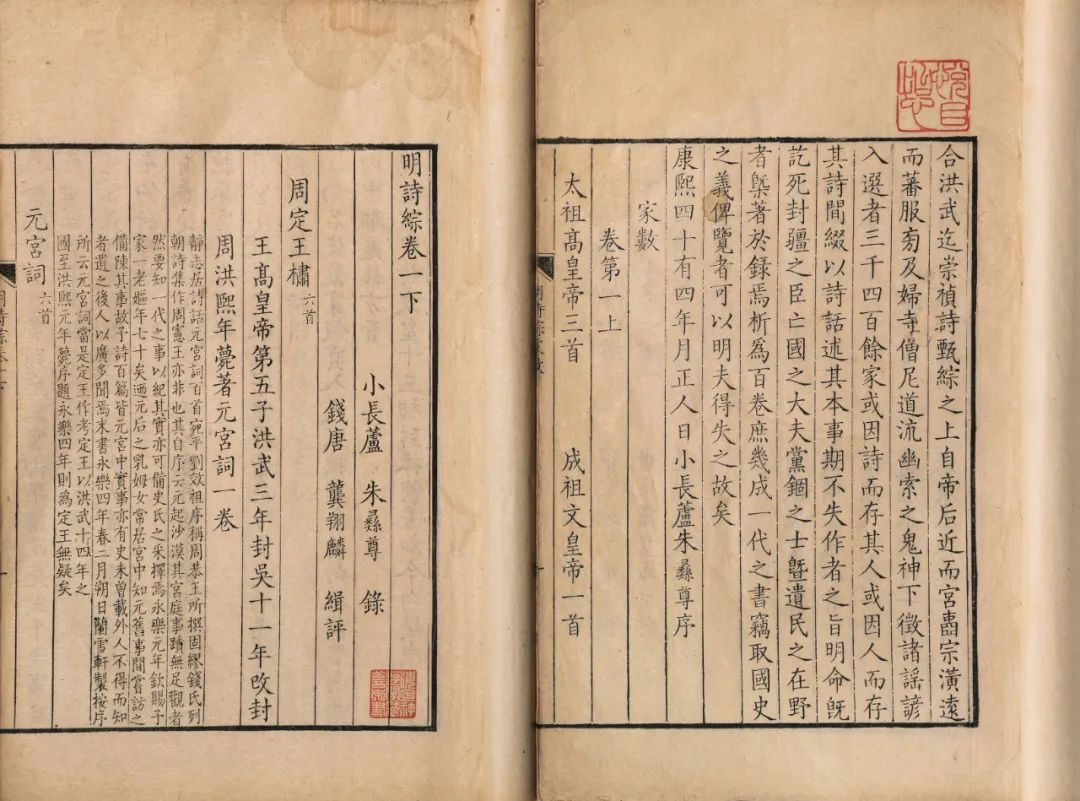 合洪武迄崇禎詩甄綜之上自帝后近而宮壼宗潢遠
而蕃服旁及婦寺僧尼道流幽索之鬼神下徵諸謠諺
入選者三千四百餘家或因詩而存其人或因人而存
其詩間綴以詩話述其本事期不失作者之旨明命旣
訖死封疆之臣亡國之大夫黨錮之士曁遺民之在野
者槩著於録焉析為百卷庶幾成一代之書竊取國史
之義俾覽者可以明夫得失之故矣
康熙四十有四年月正人日小長蘆朱彞尊序
家數
卷第一上
太祖高皇帝三首 成祖文皇帝一首
明詩綜卷一下
小長蘆 朱彞尊 錄
錢唐 龔翔麟 緝評
周定王橚六首
王高皇帝第五子洪武三年封吳十一年改封
周洪熙年薨著元宮詞一卷
靜志居詩話元宮詞百首宛平劉效祖序稱周恭王所撰固繆錢氏列
朝詩集作周憲王亦非也其自序云元起沙漠其宮庭事蹟無足觀者
然要知一代之事以紀其實亦可備史氏之采擇焉永樂元年欽賜予
家一老嫗年七十矣迺元后之乳姆女常居宮中知元舊事間嘗訪之
備陳其事故予詩百篇皆元宮中實事亦有史未曾載外人不得而知
者遺之後人以廣多聞焉末書永樂四年春二月朔日蘭雪軒製按序
所云元宮詞當是定王作考定王以洪武十四年之
國至洪熙元年薨序題永樂四年則為定王無疑矣
元宮詞六首